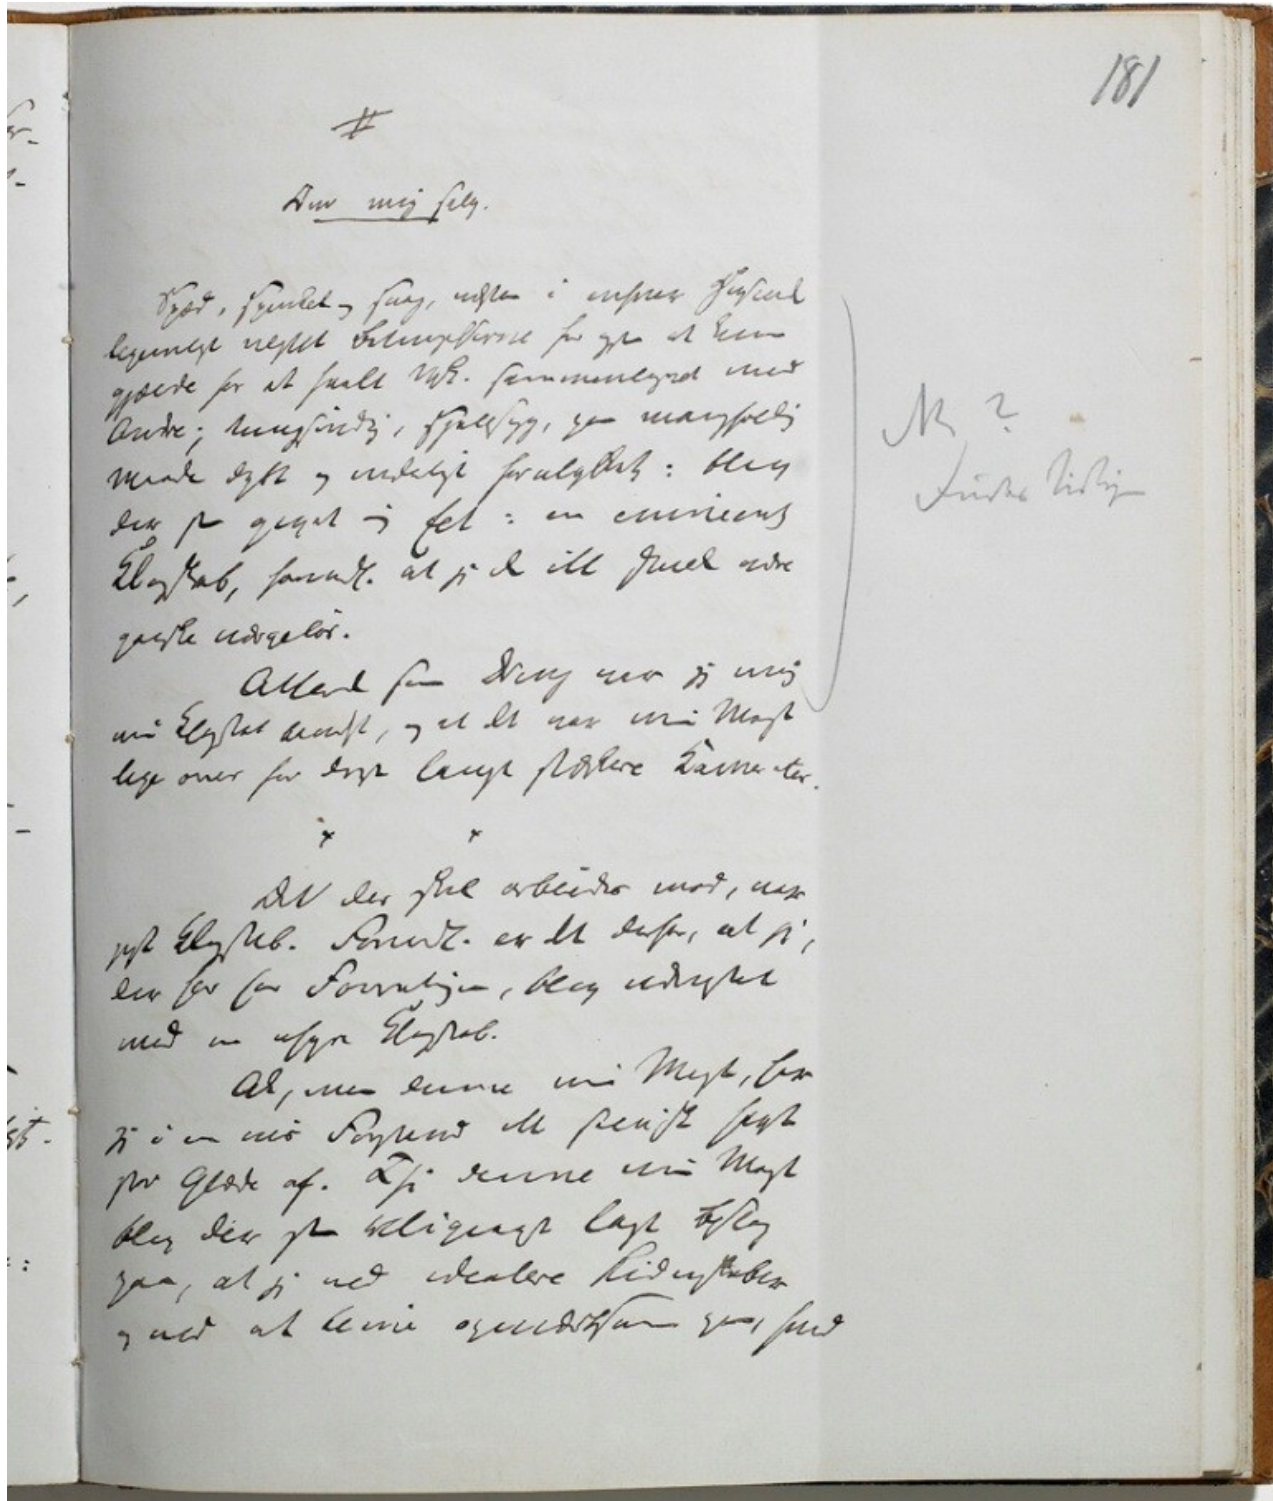 #
Om mig selv.
181
Spæd, spinkel og svag, næsten i enhver Henseende
legemligt negtet Betingelserne for at kunne
gjælde for et heelt Msk. sammenlignet med
Andre; tungsindig, sjelesyg, paa mangfoldig
Maade dybt og inderligt forulykket: blev
der givet mig Eet: en eminent
Klogskab, formodtl. at jeg dog ikke skulde være
ganske værgeløs.
Allerede som Dreng var jeg mig
min Klogskab bevidst, og at det var min Magt
lige over for disse langt stærkere Kammerater.
× ×
Det der skal arbeides mod, var
just Klogskab. Formodtl. er det derfor, at jeg,
der har Forretningen, blev udrustet
med en uhyre Klogskab.
Ak, men denne min Magt, har
jeg i en vis Forstand ikke havt
stor Glæde af. Thi denne min Magt
blev der religieust lagt Beslag
paa, at jeg ved idealere Lidenskaber
og ved at blive opmærksom paa, hvad
N ?